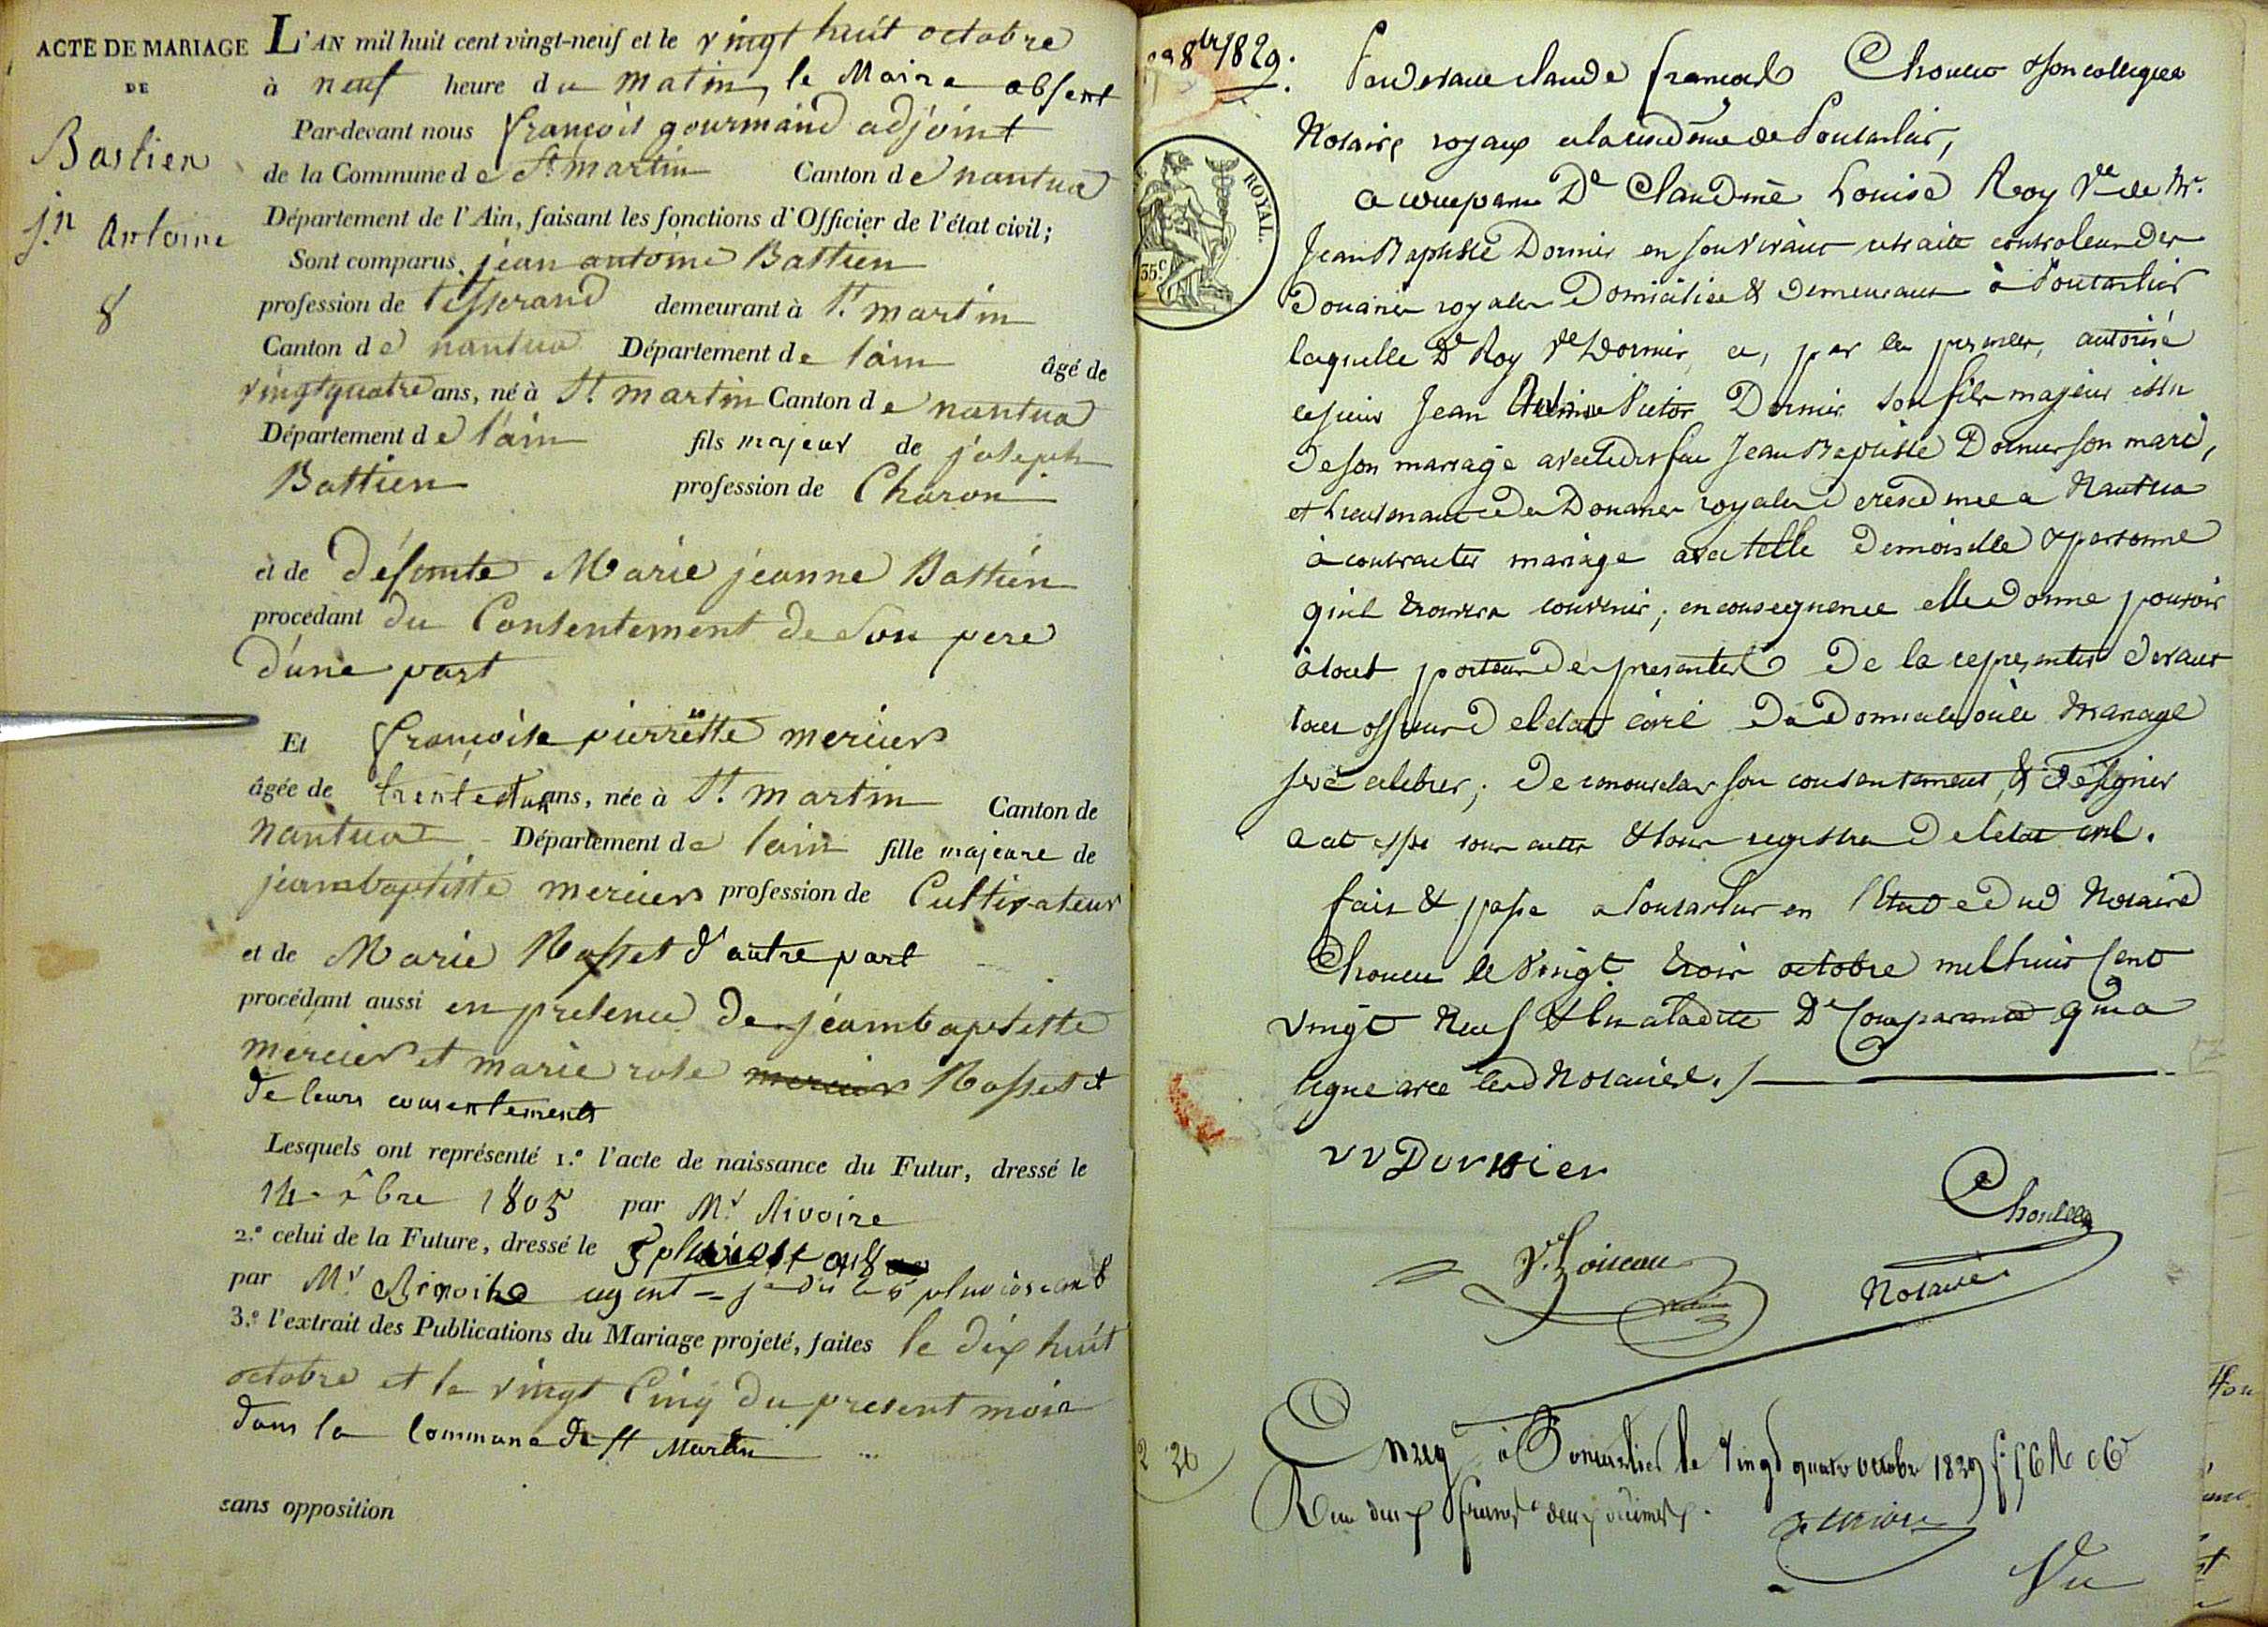 ACTE DE MARIAGE
DE
Bastien
j.n Antoine
8
L'AN mil huit cent vingt-neuf et le vingt huit octobre
à neuf heure du matin, le Maire absent
Par-devant nous françois gourmand adjoint
de la Commune de St martin Canton de nantua
Département de l'Ain, faisant les fonctions d'Officier de l'état civil;
Sont comparus jean antoine Bastien
profession de tisserand demeurant à St martin
Canton de nantua Département de lain âgé de
vingtquatre ans, né à St martin Canton de nantua
Département de l'ain fils majeur de joseph
Bastien profession de Charon
et de défomte Marie jeanne Bastien
procédant du Consentement de Son pere
d'une part
Et françoise pierrette mercier
âgée de trente et un ans, née à St martin Canton de
nantua Département de lain fille majeure de
jeanbaptiste mercier profession de Cultivateur
et de Marie Rosset d'autre part
procédant aussi en presence de jeambaptiste
mercier et marie rose mercier Rosset et
de leurs consentements
Lesquels ont représenté 1.º l'acte de naissance du Futur, dressé le
14 xbre 1805 par Mr Rivoire
2.º celui de la Future, dressé le 5 pluviose an 8
par Mr Rivoire agent = je dis le 5 pluviose an 8
3.º l'extrait des Publications du Mariage projeté, faites le dix huit
octobre et le vingt Cinq du present mois
dans la Commune de St Martin
sans opposition
8bre 1829.
ROYAL.
35c
Pardevant claude francois Chouet & son collegue
Notaires royaux a la residence de Pontarlier,
a comparu De Claudine Louise Roy Ve de Mr.
Jean Baptiste Dornier en son vivant retraite controleur des
Douanes royales Domiciliée & demeurant à Pontarlier
laquelle De Roy Ve Dornier a, par les presentes, autorisé
le sieur Jean Antoine Victor Dornier son fils majeur issu
de son mariage avec ledit feu Jean Baptiste Dornier son mari,
et Lieutenant des Douanes royales de residence a Nantua
à contracter mariage avec telle demoiselle & personne
qu'il trouvera convenir; en consequence elle donne pouvoir
à tout porteur des presentes de la representer devant
tous officiers de l'etat civil du domicile où le mariage
sera celebré; de renouveler son consentement, & de signer
a cet effet tous actes & tous registres de l'état civil.
fait & passé a Pontarlier en l'Etude dud Notaire
Chouet le vingt trois octobre mil huit Cent
vingt Neuf & lu a ladite De Comparante qui a
signé avec lesd Notaires./
vv Dornier
Notaire
Enreg à Pontarlier le vingt quatre octobre 1829
Recu deux francs deux décimes.
Vu